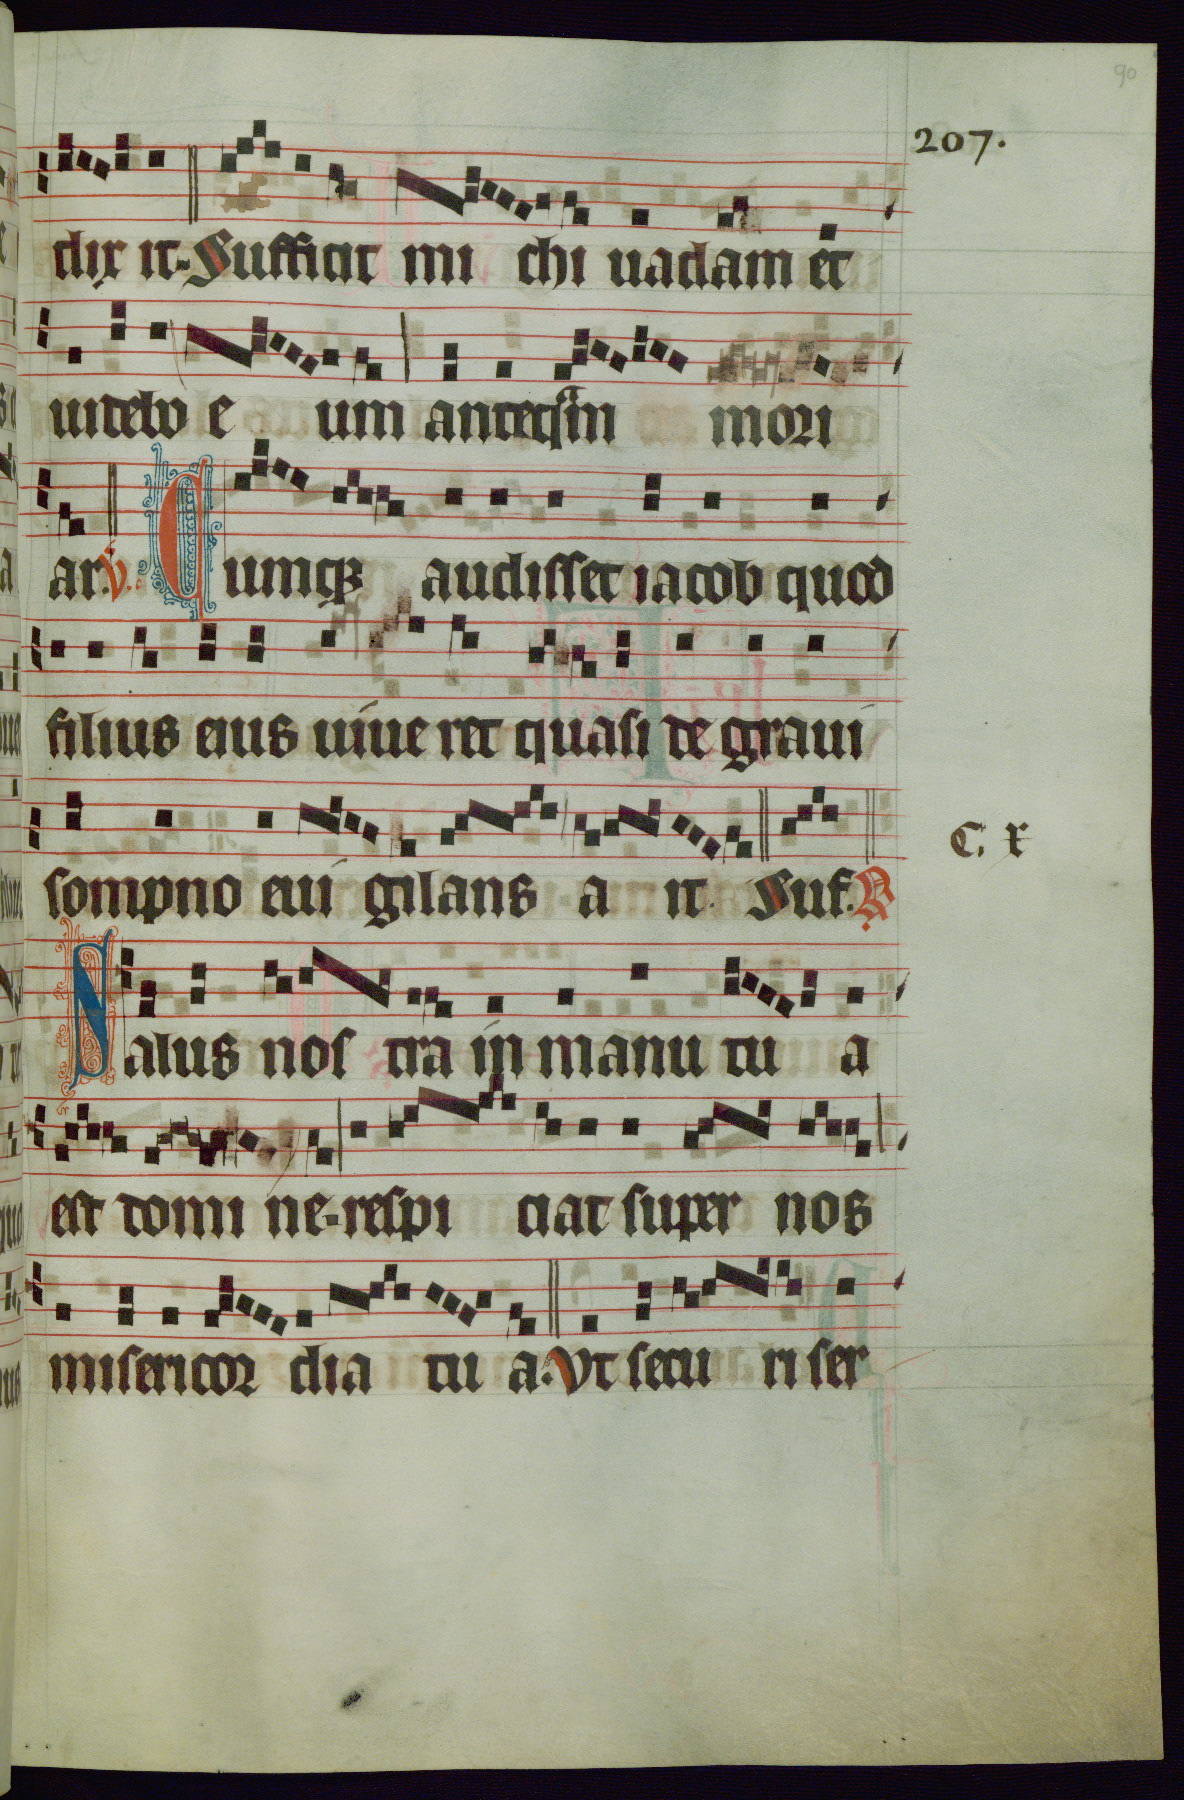 90
207.
dix it. Sufficit mi chi uadam et
uidebo e um anteq̄m mori
ar. V. Cumq; audisset iacob quod
filius eius uiue ret quasi de graui
sompno eui gilans a it. Suf. R
Salus nos tra in manu tu a
C. x
est domi ne. respi ciat super nos
misericor dia tu a. Vt secu ri ser